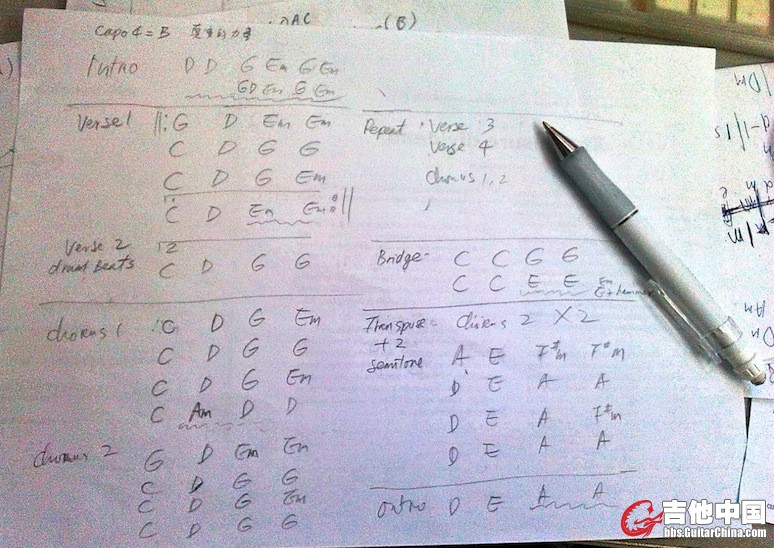 AC
(B)
Capo 4 = B
Intro D D G Em G Em
GD Em G Em
Verse 1 ||: G D Em Em
C D G G
C D G Em
C D Em Em :||
Verse 2
drum beats
2
C D G G
Chorus 1 G D G Em
C D G G
C D G Em
C Am D D
Chorus 2 G D Em Em
C D G G
C D G Em
C D G G
Repeat : Verse 3
Verse 4
Chorus 1, 2
Bridge - C C G G
C C E E
Transpose = Chorus 2 X 2
+2
semitone
A E F#m F#m
D E A A
D E A F#m
D E A A
Outro D E A A
Dm
吉他中国
bbs.GuitarChina.com